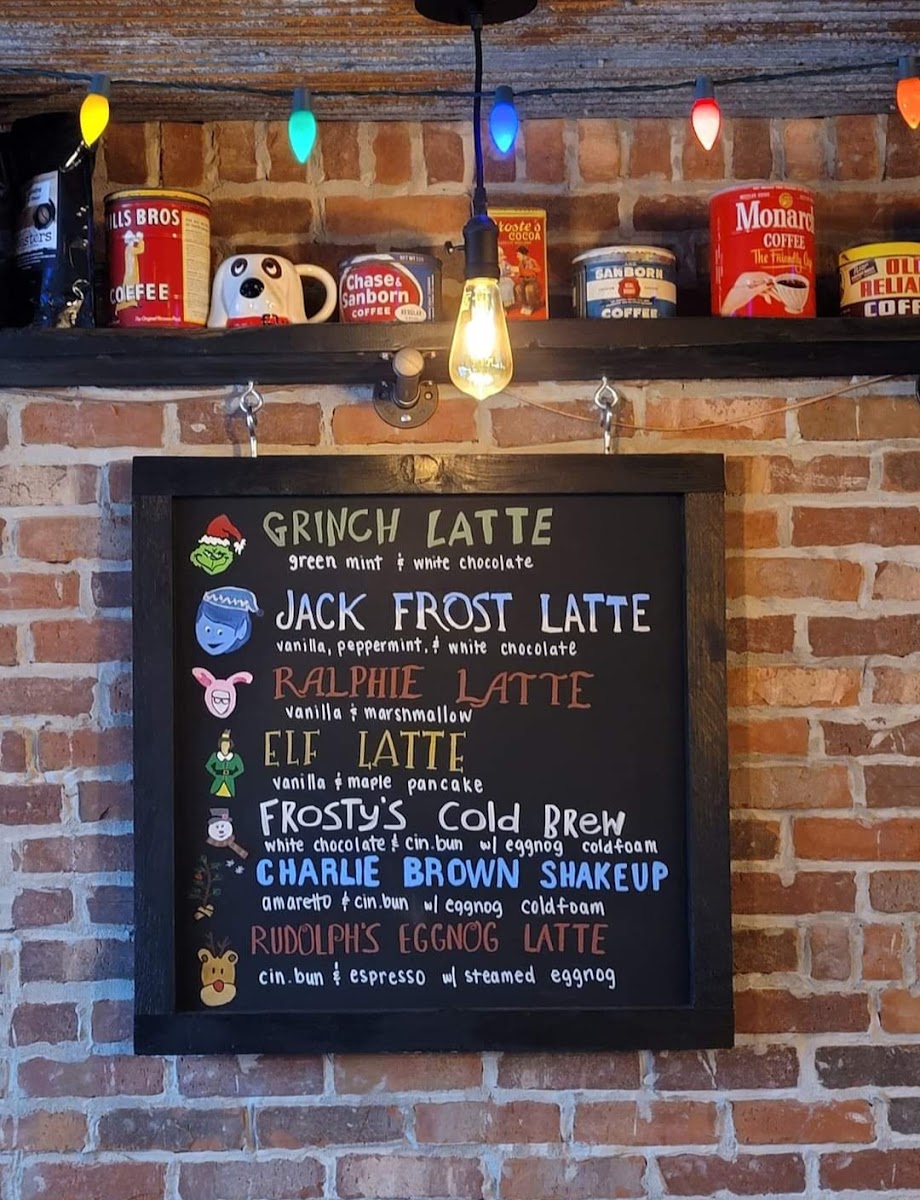 LLS BROS
COFFEE
Chase &
Sanborn
COFFEE
REGULAR
COCOA
SANBORN
COFFEE
Monarc
COFFEE
The Friendly Cup
OLD
RELIA
COFF
GRINCH LATTE
green mint & white chocolate
JACK FROST LATTE
vanilla, peppermint, & white chocolate
RALPHIE LATTE
vanilla & marshmallow
ELF LATTE
vanilla & maple pancake
FROSTY'S COLD BREW
white chocolate & cin.bun w/ eggnog coldfoam
CHARLIE BROWN SHAKEUP
amaretto & cin.bun w/ eggnog coldfoam
RUDOLPH'S EGGNOG LATTE
cin.bun & espresso w/ steamed eggnog